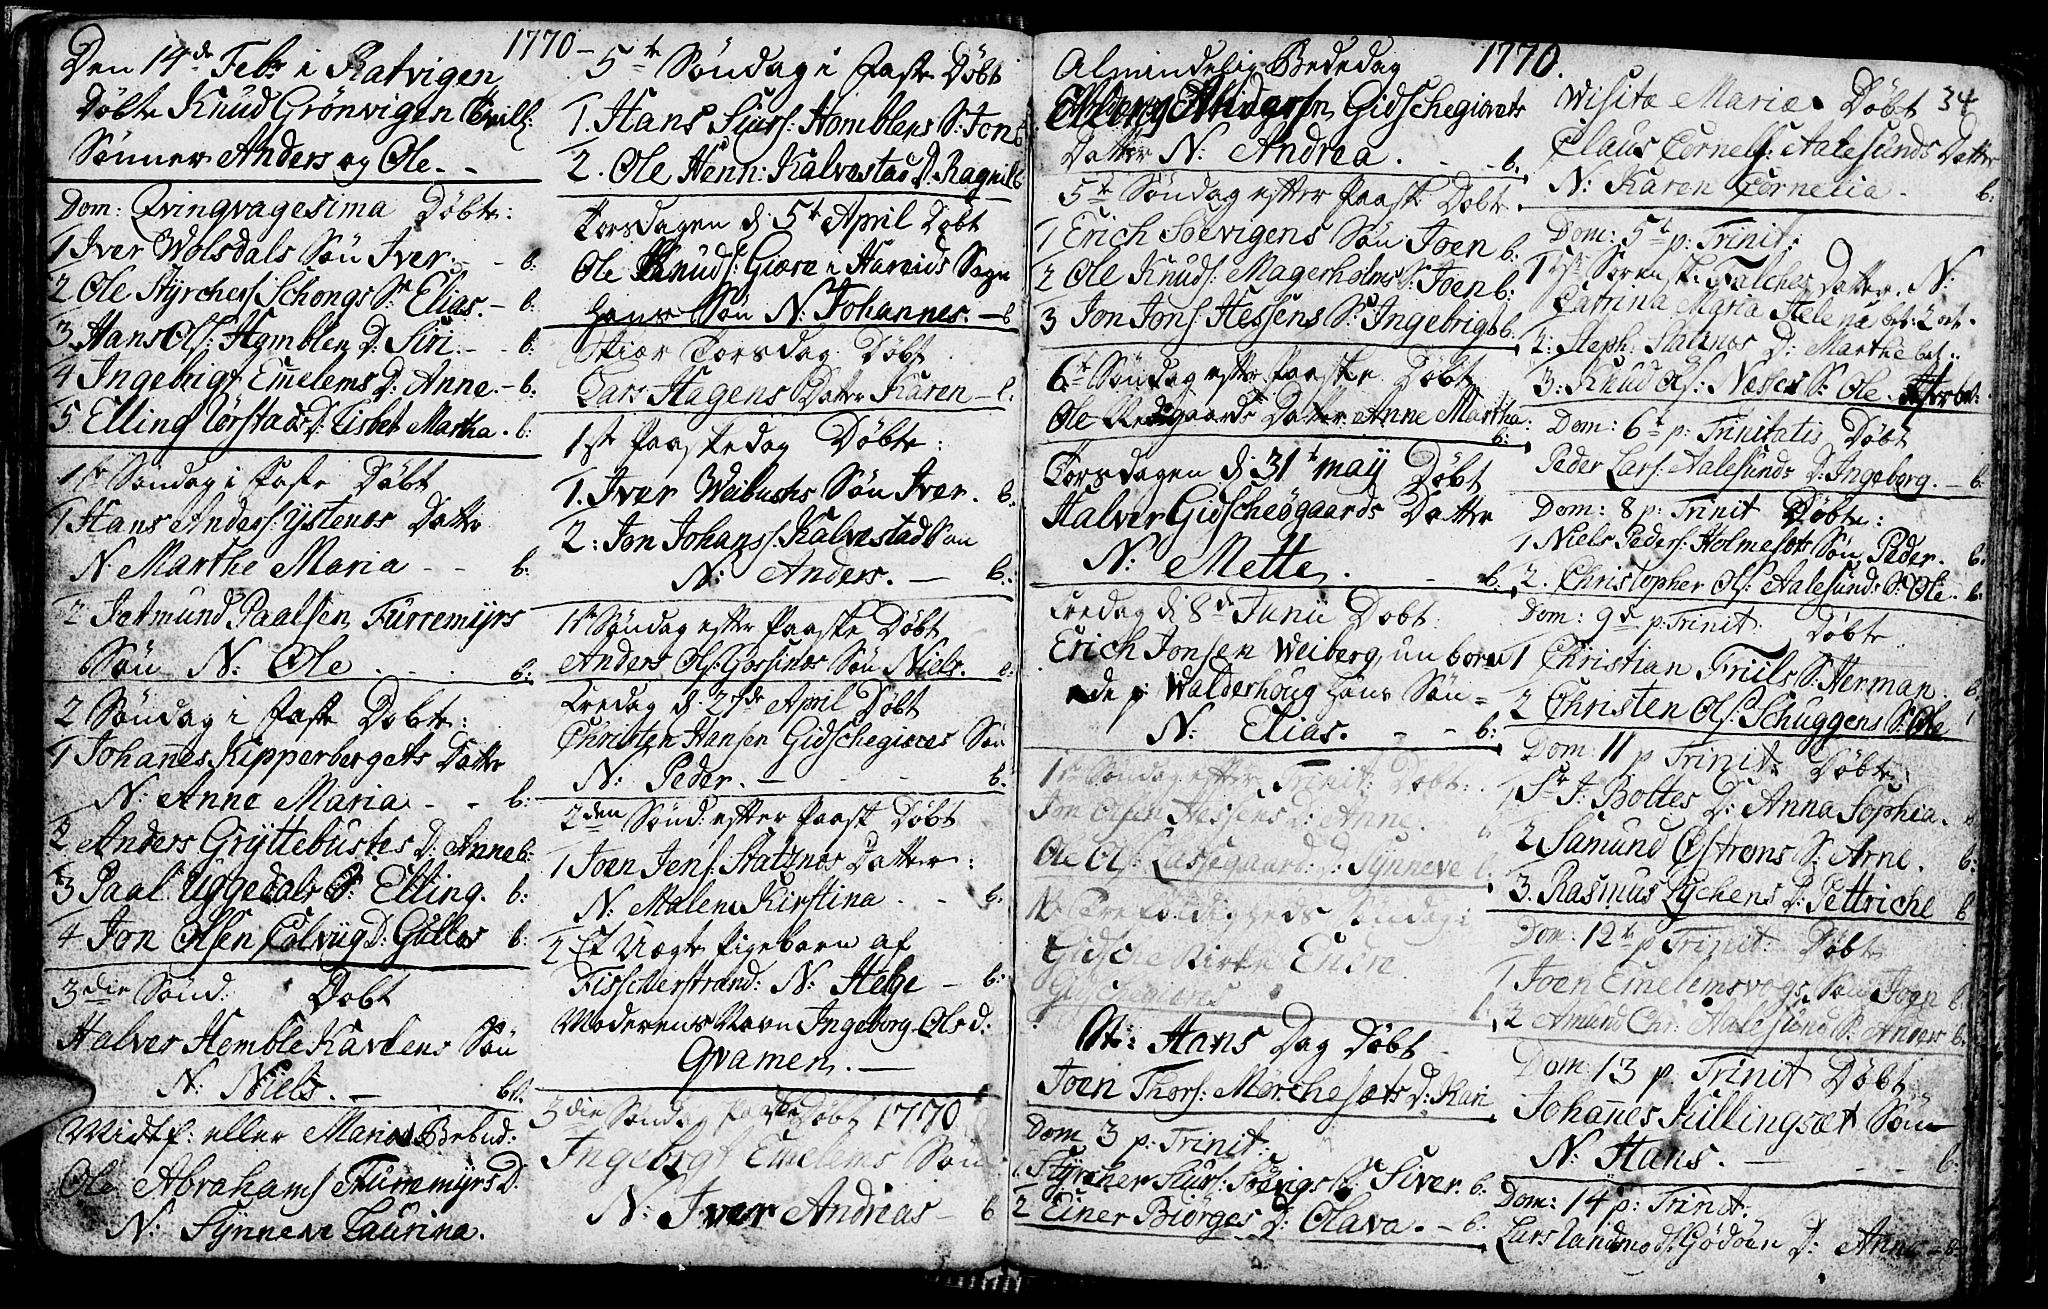 1770
Den 14de Febr i Ratvigen
Døbte Knud Grønvigen Tvill:
Sønner Anders og Ole. -
Dom: Qvinqvagesima Døbte:
1 Iver Wolsdals Søn Iver. - b:
2 Ole Styrchers: Schongs S: Elias. - b:
3 Hans Ols: Homblen D: Siri. - b:
4 Ingebrigt Emelems D: Anne. - b:
5 Elling Lørstads D: Lisbet Martha. b:
1ste Søndag i Faste Døbt
1 Hans Anders: Ystenæs Datter
N Marthe Maria - - b:
2 Jetmund Paalsen Furremyrs
Søn N: Ole . . . b:
2 Søndag i Faste Døbte:
1 Johanes Kipperbergets Datter
N: Anne Maria - - b:
2 Anders Gryttebustes D: Anne b:
3 Paal Uggedals S: Elling. b:
4 Jon Olsen Colvüg D: Gulloe b:
3die Sønd: Døbt
Halver Homble Kavlens Søn
N: Niels. - bt.
Midtf: eller Mariæ Bebud:
Ole Abrahams Furremyrs D:
N: Synneve Laurina.
5te Søndag i Faste Døbt
1. Hans Siurs: Homblens S: Jons
2. Ole Henn: Kalvestad D. Ragnild
Torsdagen d: 5te April Døbt
Ole Knuds: Giære i Hareids Sogn
Hans Søn N: Johannes. - b
Skiær Torsdag Døbt
Lars Hagens Datter Karen - b.
1ste Paaskedag Døbte:
1. Iver Weibusts Søn Iver. b:
2: Jon Johans: Kalvestad Søn
N: Anders. - b:
1ste Søndag efter Paaske Døbt
Anders Ols: Gossenæs Søn Niels. b:
Fredag d: 27de April Døbt
Christen Hansen Gidschegiæres Søn
N: Peder. - - - b:
2den Sønd: efter Paaske Døbt
1 Joen Jens: Statznæs Datter:
N: Malene Kirstina . . b.
2 Et Uægte Pigebarn af
Fisscherstrand: N: Helge - b:
Moderens Navn Ingeborg Olsd:
Qvamen. -
3die Søndag Paaske Døbt 1770
Ingebrigt Emelems Søn
N: Iver Andreas - b
Almindelig Bededag 1770.
Gidschegiærets
Datter N: Andrea. - - b.
5te Søndag efter Paaske Døbte.
1 Erich Soevigens Søn Joen b:
2 Ole Knuds: Magerholms S: Joen b:
3 Jon Jons: Hessens S: Ingebrigt b:
6te Søndag efter Paaske Døbt
Ole Rødgaards Datter Anne Martha:
b:
Torsdagen d: 31te may Døbt
Halver Gidscheøgaards Datter
N: Mette. - b:
Fredag d: 8de Junii Døbt
Erich Jonsen Weiberg,
p: Walderhoug Hans Søn
N: Elias. - - b:
1ste Søndag efter Trinit: Døbt:
Jon Olsen Hessens D: Anne.
Ole Ols: Lassegaard: D: Synneve b.
N: Trefoldigheds Søndag i
Gidsche Kirke Endre
Gidschegiæres b.
St: Hans Dag Døbt
Joen Thors: Mørchesæts D: Kari
Dom 3 p: Trinit:
1. Styrcher Siurs: S: Siver. b:
2 Einer Biørges D: Olava. - b:
34
Wisitæ Mariæ Døbt
Claus Cornels: Aalesunds Datter
N: Karen Cornelia - b:
Dom: 5te p: Trinit:
1 Sr. Sørensk: Falches Datter N:
Catrina Maria Helene bt:
2: Steph: Statznæs D: Marthe bt.
3: Knud Ols: Nesset S: Ole
Dom: 6te p: Trinitatis Døbt
Peder Lars: Aalesunds D: Ingeborg. - b.
Dom: 8 p: Trinit Døbte:
1 Niels Peders: Holmesæts Søn Peder. b:
2. Christopher Ols: Aalesunds S: Ole. b:
Dom: 9de p: Trinit: Døbte
1 Christian Friils S: Herman. b:
2 Christen Ols: Schuggens S: Ole
Dom: 11 p Trinit: Døbte:
1 Sr J: Boltes D: Anna Sophia. b.
2 Samund Østrems S: Arne. b:
3. Rasmus Lychens D: Pettriche b
Dom: 12te p Trinit: Døbte
1 Joen Emelemsvogs Søn Joen b:
2 Amund Chr: Aalesund S: Anders b.
Dom: 13 p Trinit Døbt
Johannes Kullingsæt Søn
N: Hans. - - - b:
Dom: 14 p: Trinit:
Lars Landmods: Godøen D: Anne - b.